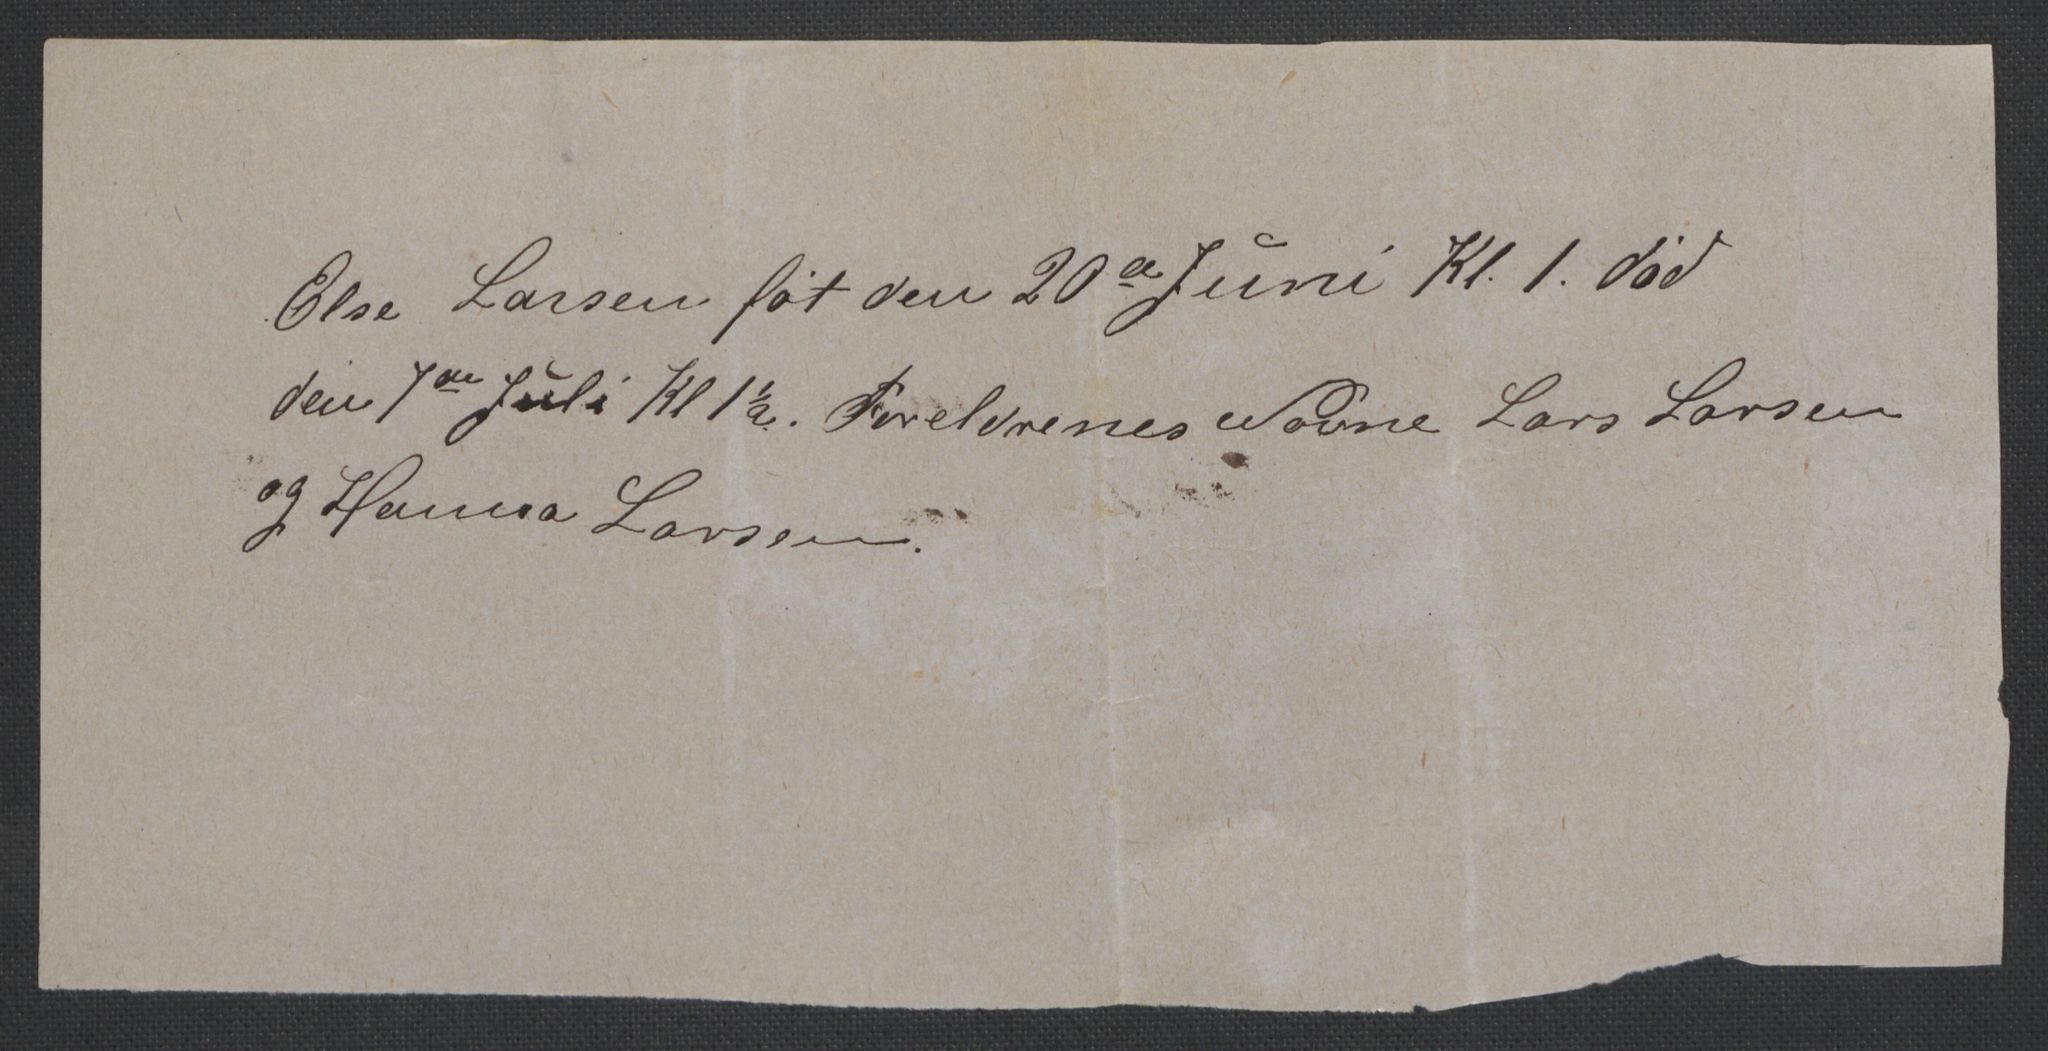 Else Larsen föt den 20de Juni Kl. 1. död
den 7de Juli Kl 1½. Foreldrenes Navne Lars Larsen
og Hanna Larsen.